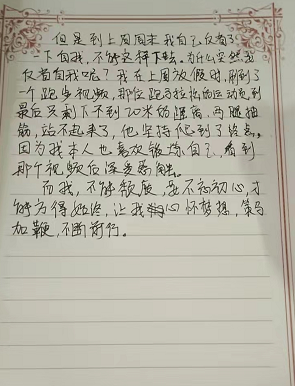 但是到上周周末我自己反省了
一下自我,不能这样下去。为什么突然我
反省自我呢?我在上周放假时,刷到了
一个跑步视频,那位跑马拉松的运动员到
最后只剩下不到20米的距离,两腿抽
筋,站不起来了,他坚持爬到了终点。
因为我本人也喜欢锻炼自己,看到
那个视频后深受感触。
而我,不能颓废,要不忘初心,才
能方得始终,让我心怀梦想,策马
加鞭,不断前行。